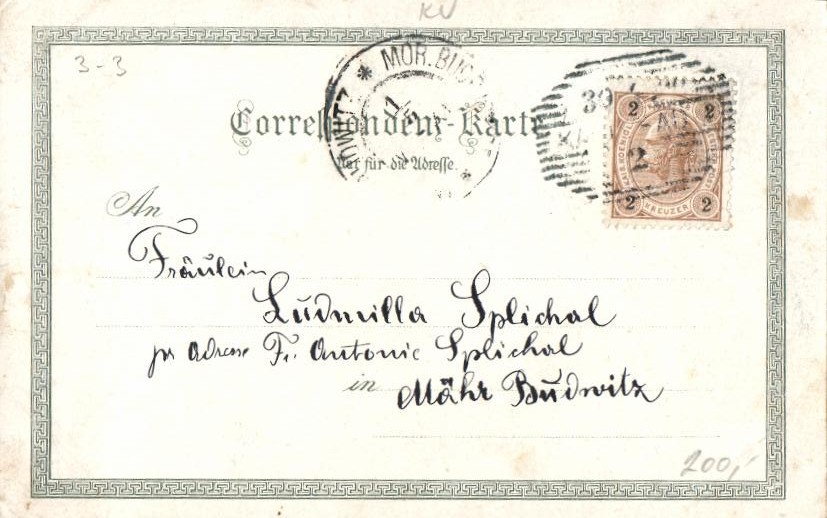 KV
3-3
MOR. BUD
OWITZ
Correspondenz-Karte
Nur für die Adresse.
39
2
2 2
KREUZER
2 2
An
Fräulein
Ludmilla Splichal
per Adresse Fr. Antonie Splichal
in Mähr Budwitz
200,-